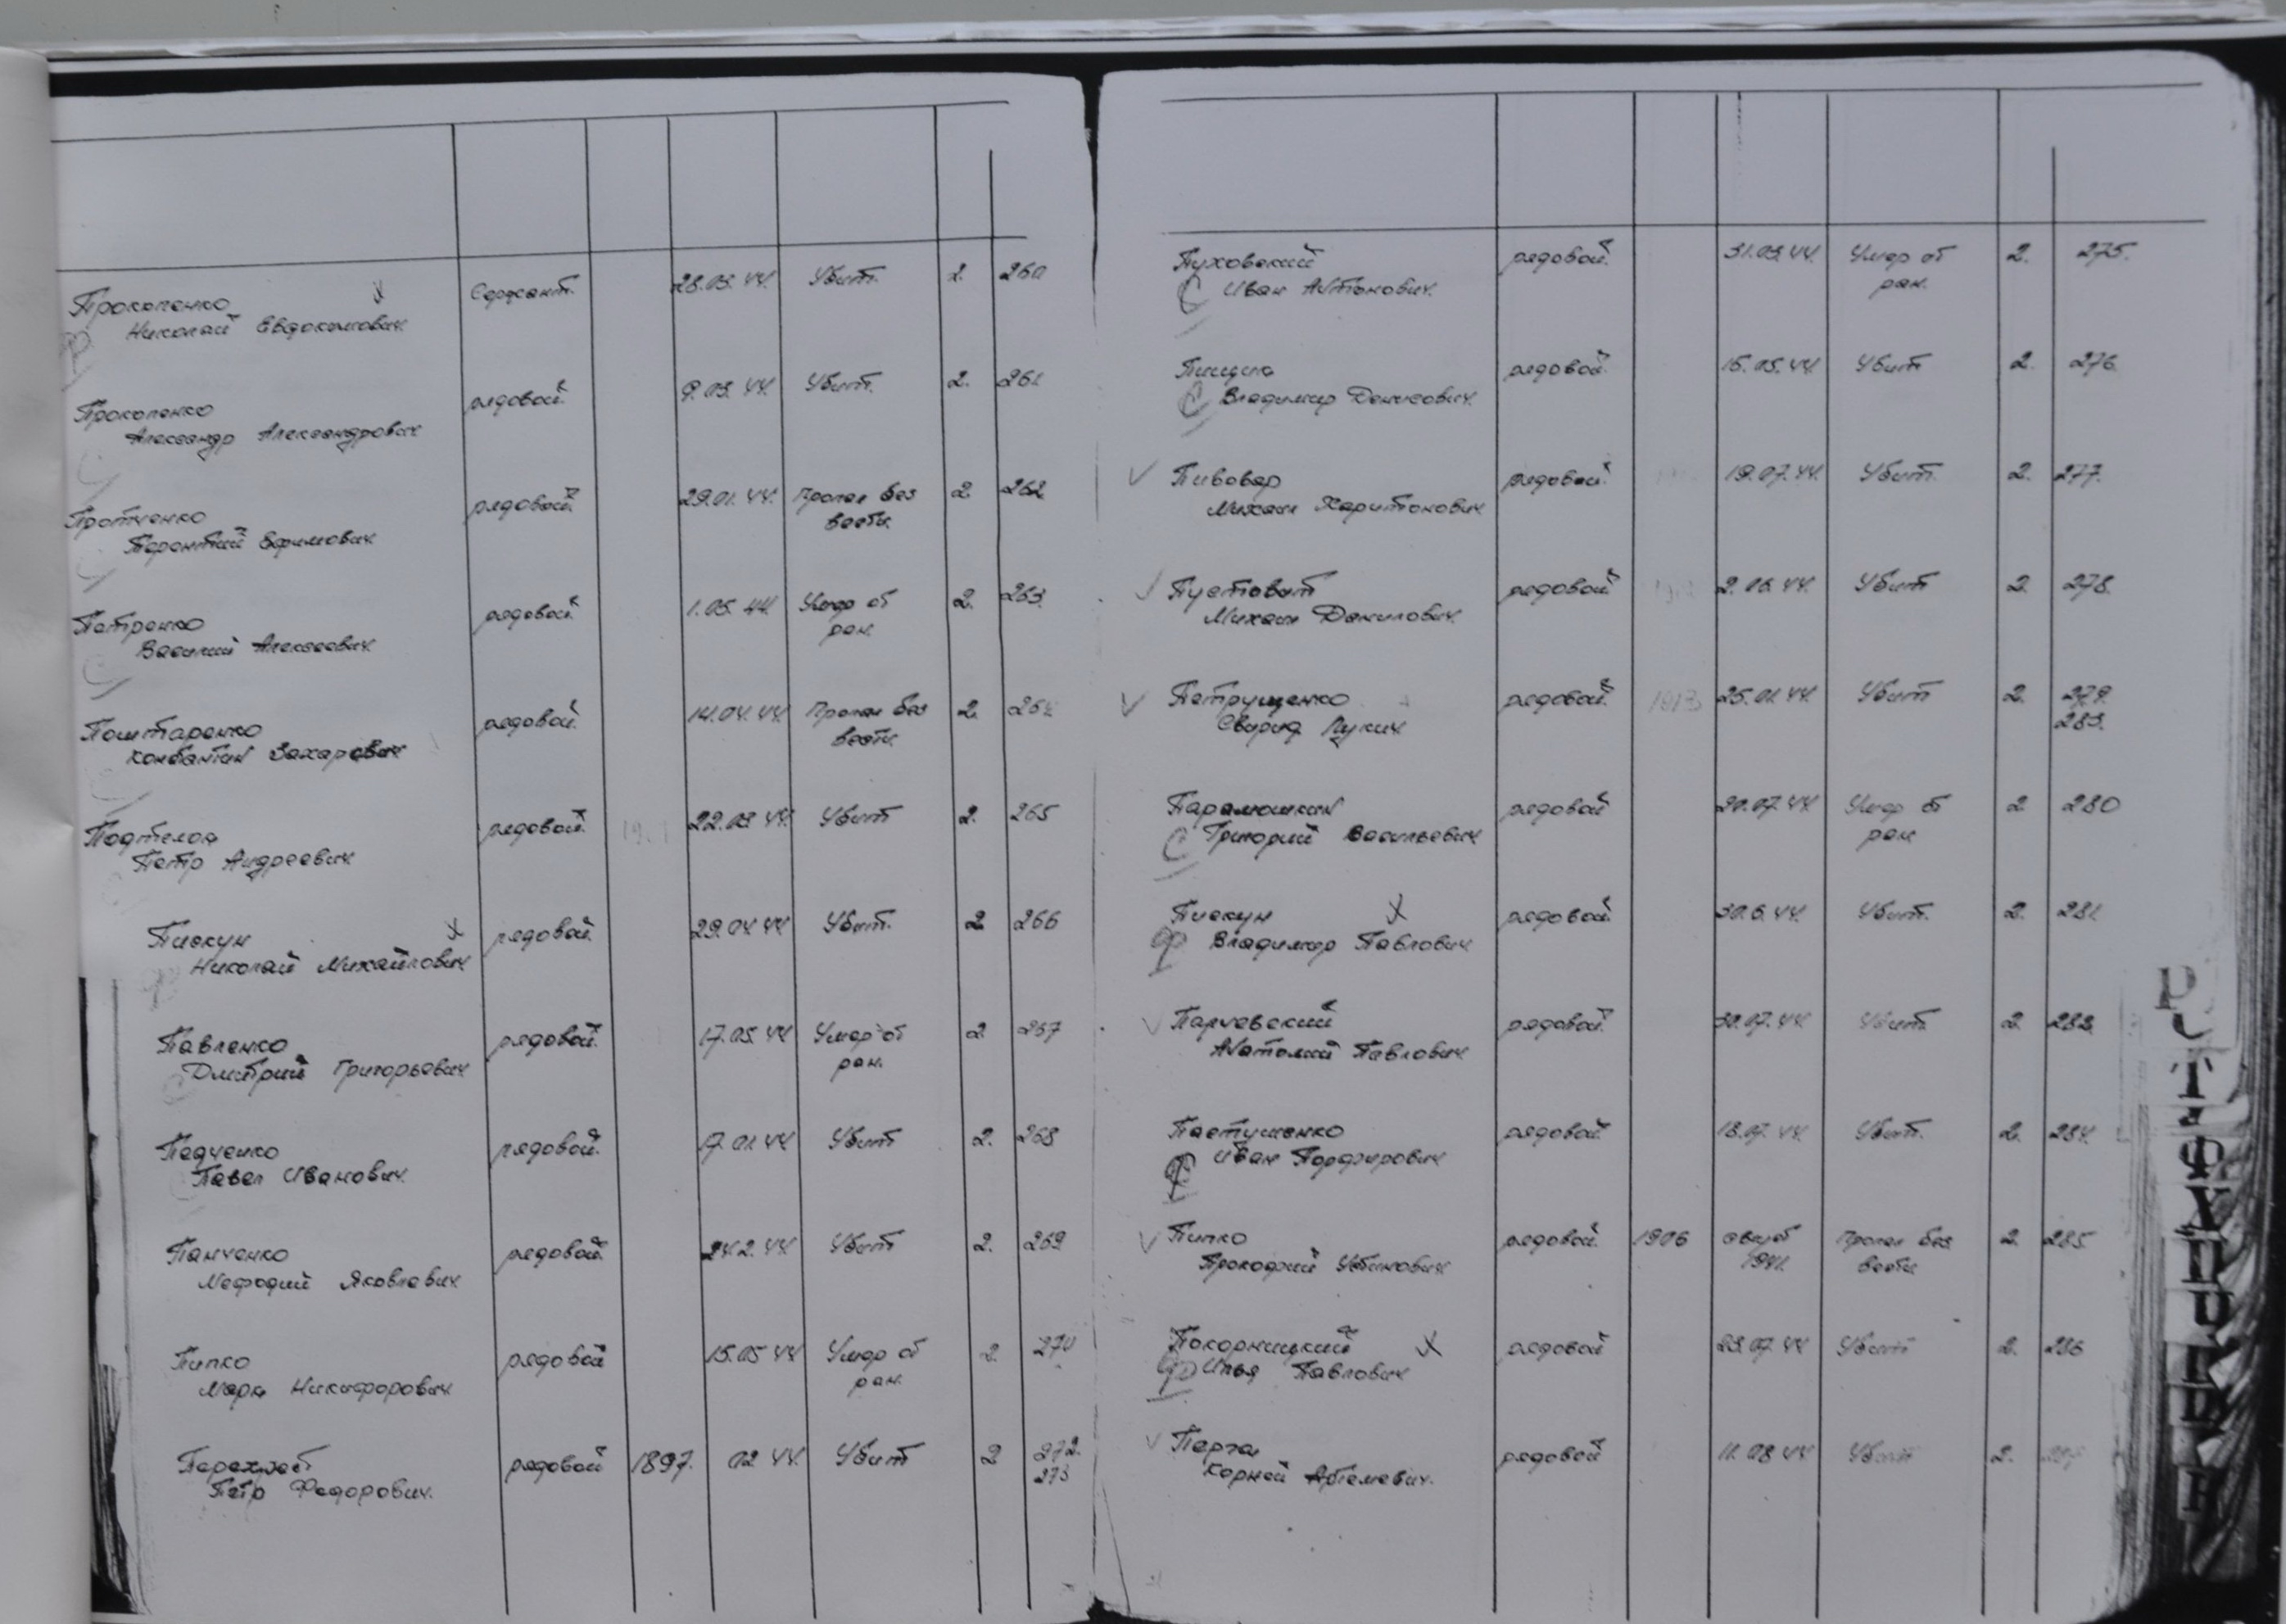 Прокопенко Сержант. 28.03.44. Убит. 2. 260
Николай Евдокимович
Прокопенко рядовой. 9.03.44. Убит. 2. 261
Александр Александрович
Протченко рядовой. 29.01.44. Пропал без 2 262
Терентий Ефимович вести.
Петренко рядовой. 1.05.44. Умер от 2. 263.
Василий Алексеевич ран.
Поштаренко рядовой. 14.04.44 Пропал без 2. 264.
Захарович вести.
рядовой. 22.03.44. Убит 2. 265
Петр Андреевич
Пискун рядовой. 29.04.44 Убит. 2 266
Николай Михайлович
Павленко рядовой. 17.05.44 Умер от 2 267
Дмитрий Григорьевич ран.
Педченко рядовой. 17.01.44 Убит 2. 268
Павел Иванович.
Панченко рядовой. 24.2.44 Убит 2. 269
Мефодий Яковлевич.
Пипко рядовой 15.05.44 Умер от 2. 270
Марк Никифорович ран.
Перехрест рядовой 1897. 02.44. Убит 2 272.
Петр Федорович. 273
Пуховский рядовой. 31.03.44. Умер от 2. 275.
Иван Антонович. ран.
рядовой. 15.05.44 Убит 2. 276
Владимир Денисович.
Пивовар рядовой 19.07.44. Убит. 2. 277.
Михаил Харитонович
Пустовит рядовой 2.06.44. Убит 2. 278.
Михаил Данилович.
Петрущенко рядовой. 1913 25.01.44. Убит 2. 279.
Свирид Лукич. 283.
Парамошкин рядовой 20.07.44. Умер от 2 280
Григорий Васильевич ран
Пискун рядовой. 30.6.44. Убит. 2. 281.
Владимир Павлович
Парчевский рядовой. 30.07.44. Убит. 2
Анатолий Павлович
Пастушенко рядовой. 18.07.44. Убит. 2. 284.
Иван Порфирович
Пипко рядовой. 1906 1941. Пропал без 2. 285.
Прокофий Устинович вести
Покорницкий рядовой 23.07.44 Убит 2. 286
Илья Павлович
Перга рядовой 11.08.44 Убит 2.
Корней Артемович.
Р
У
Т
Ф
Х